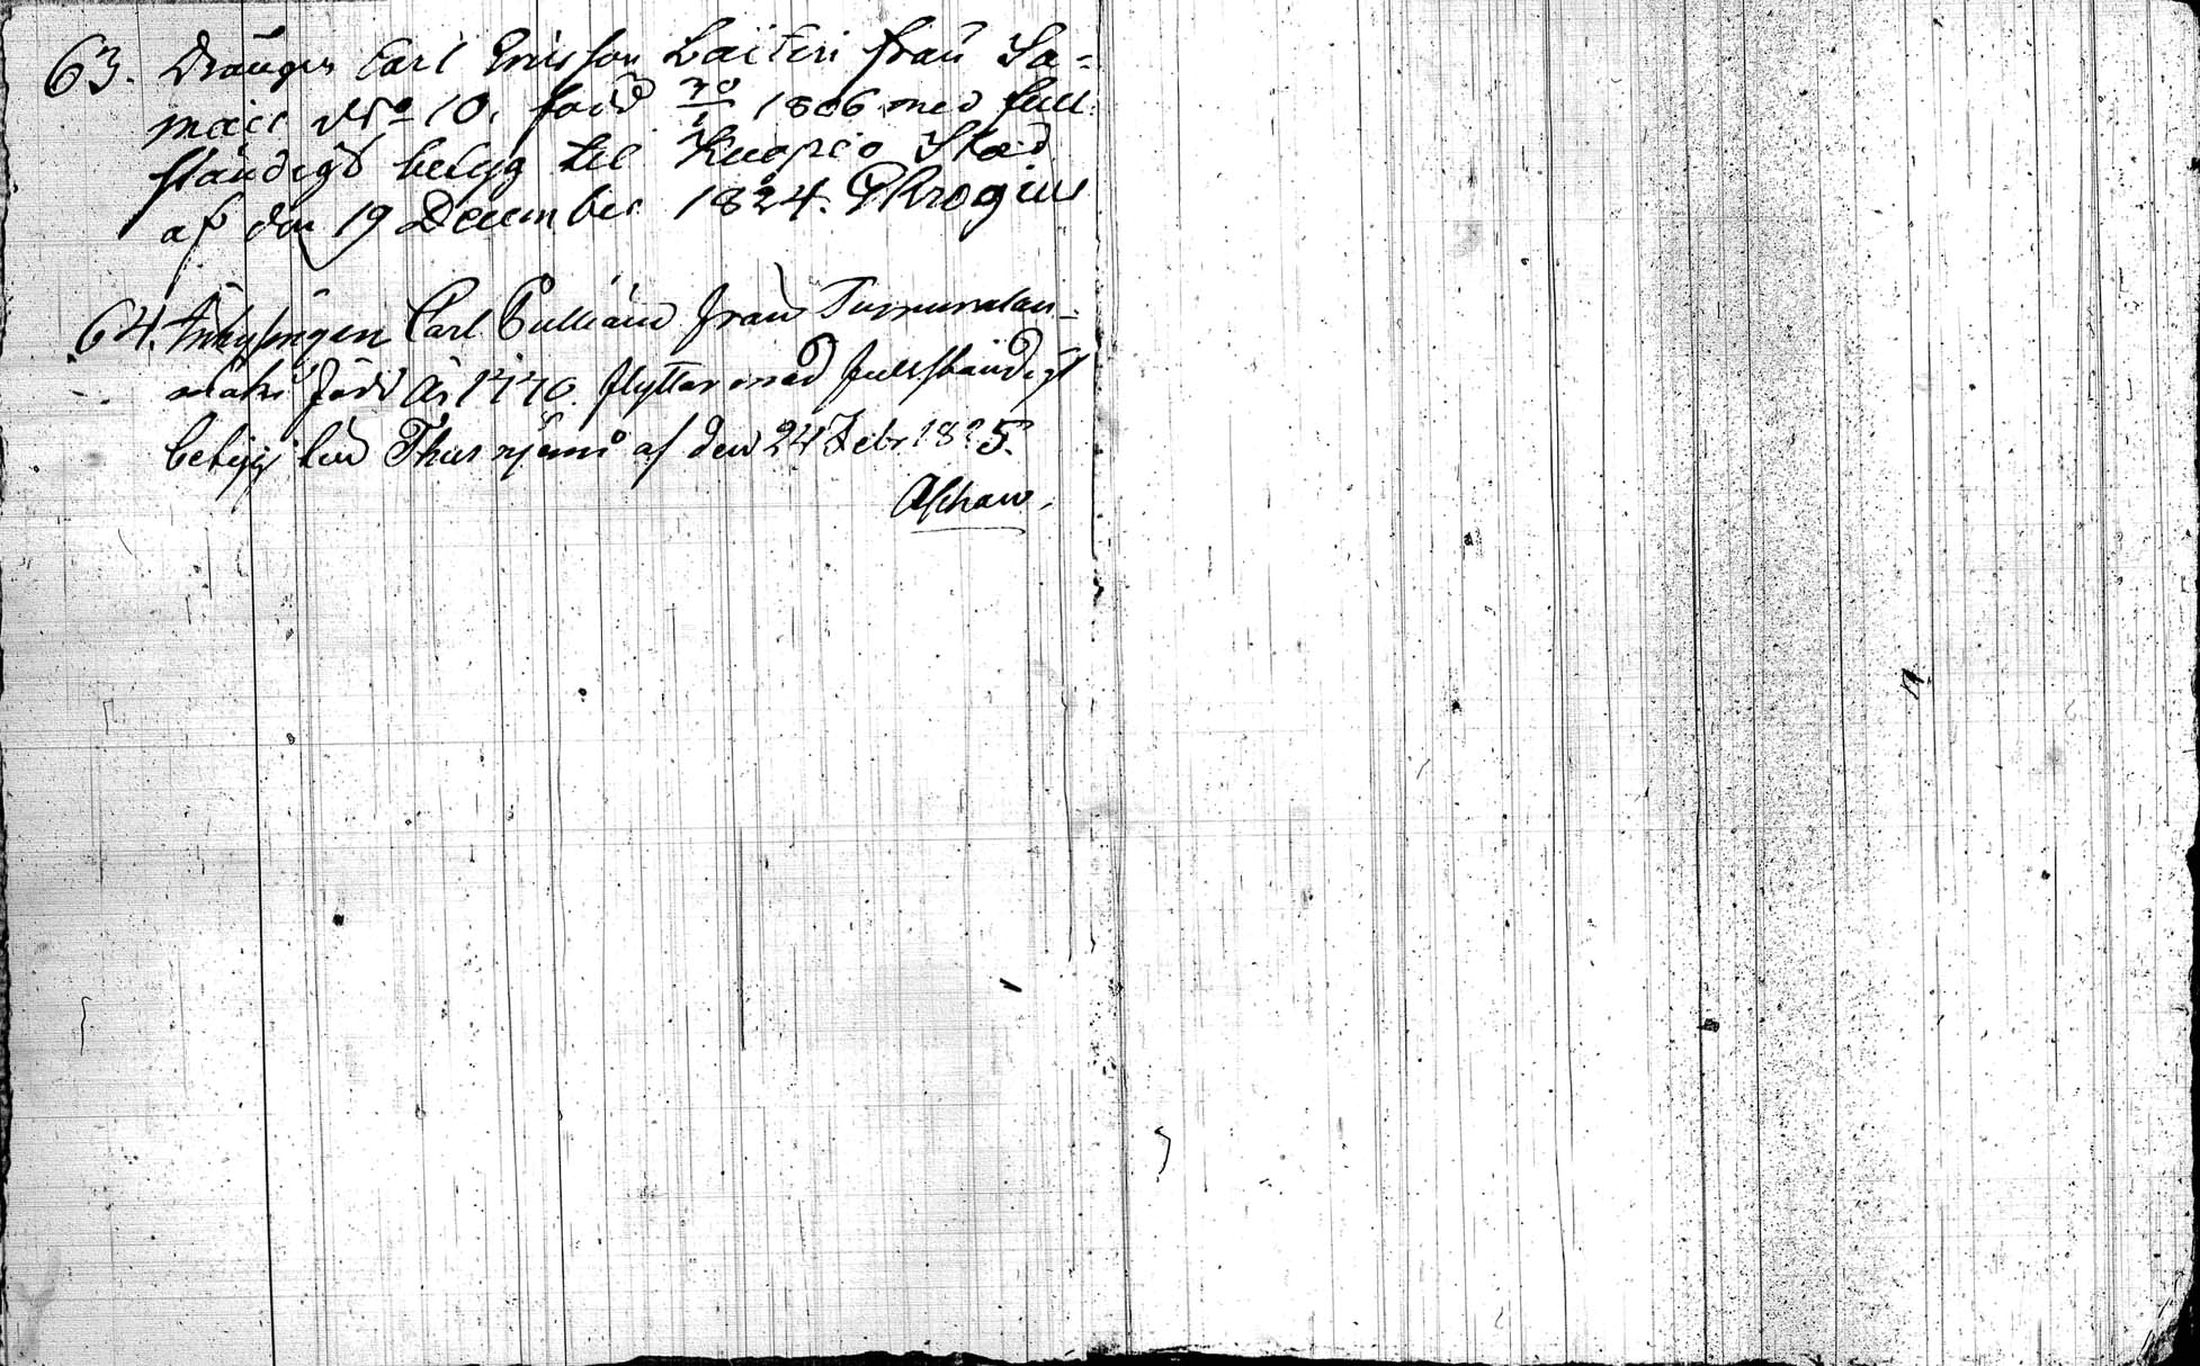 63. Drängen Carl Ericsson Laitin från Sa=
maje No 10, född 30/1 1806 med full
ständigt betyg til Kuopio Stad
af den 19 December 1824. G Krogius
64. Inhysingen Carl från
mäki född år 1770. flyttar med fullständigt
betyg af den 24 Febr 1825.
Aschan.